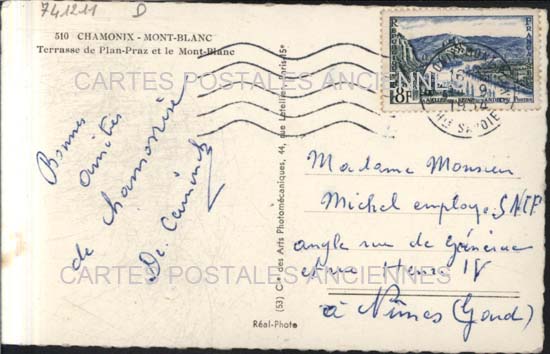 741211 D
510 CHAMONIX - MONT-BLANC
Terrasse de Plan-Praz et le Mont-Blanc
CARTES POSTALES ANCIENNES
Bonnes
amitiés
de chamonix
De
(53) Cie des Arts Photomécaniques, 44, rue Letellier, Paris-15e
Réal-Photo
FRANCE
8F
Postes
CHAMONIX
16
9
Hte SAVOIE
Madame Monsieur
Michel employé SNCF
angle rue de Générac
et rue Henri IV
à Nîmes (Gard)
CARTES POSTALES ANCIENNES